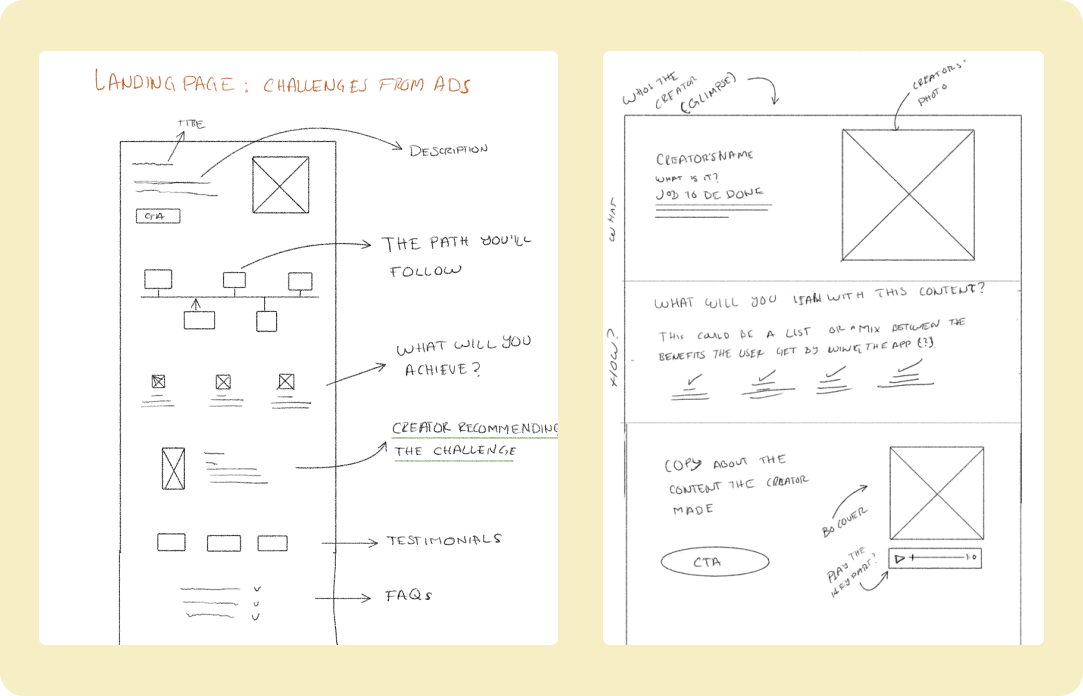 LANDING PAGE: CHALLENGES FROM ADS
TITLE
DESCRIPTION
CTA
THE PATH YOU'LL
FOLLOW
WHAT WILL YOU
ACHIEVE?
CREATOR RECOMMENDING
THE CHALLENGE
TESTIMONIALS
FAQs
WHO'S THE
CREATOR
(GLIMPSE)
CREATORS'
PHOTO
WHAT
CREATOR'S NAME
WHAT IS IT?
JOB TO BE DONE
HOW?
WHAT WILL YOU WITH THIS CONTENT?
THIS COULD BE A LIST OR A MIX BETWEEN THE
BENEFITS THE USER GET BY THE APP (?).
COPY ABOUT THE
CONTENT THE CREATOR
MADE
CTA
COVER
PLAY THE
KEY PART!